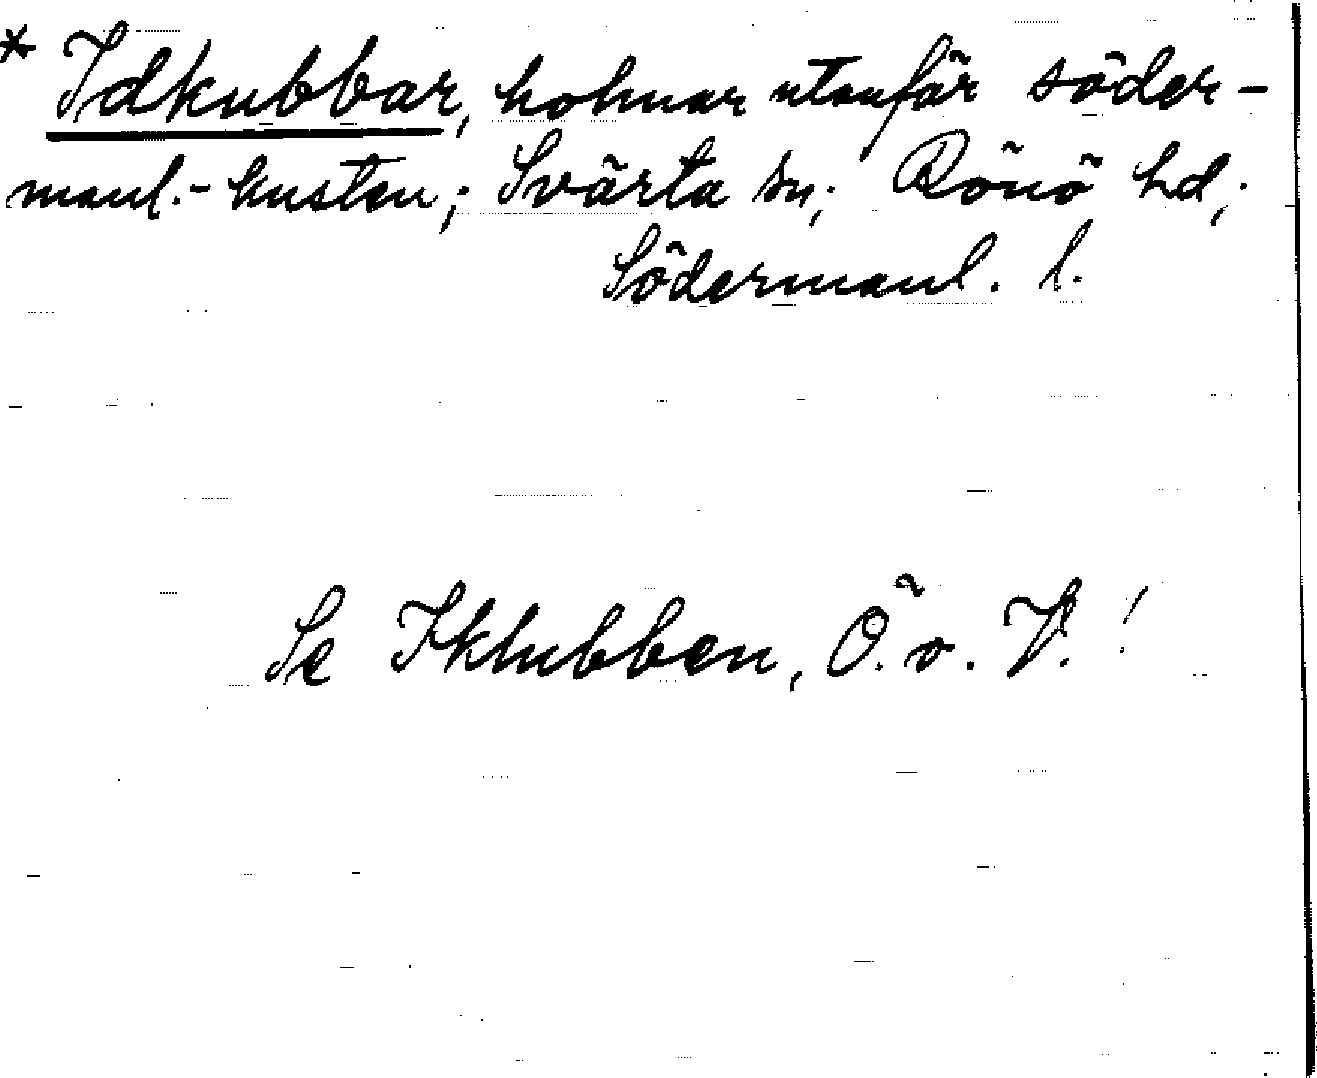 * Idkubbar, holmar utanför söder-
manl.-kusten; Svärta sn; Rönö hd;
Södermanl. l.
Se Iklubben, Ö. o. V.!